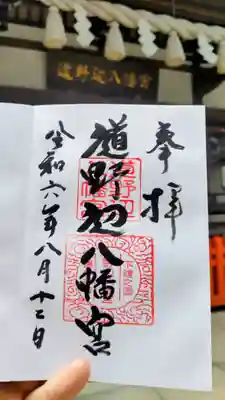 奉拝
道野辺八幡宮
令和六年八月十二日
道野辺八幡宮